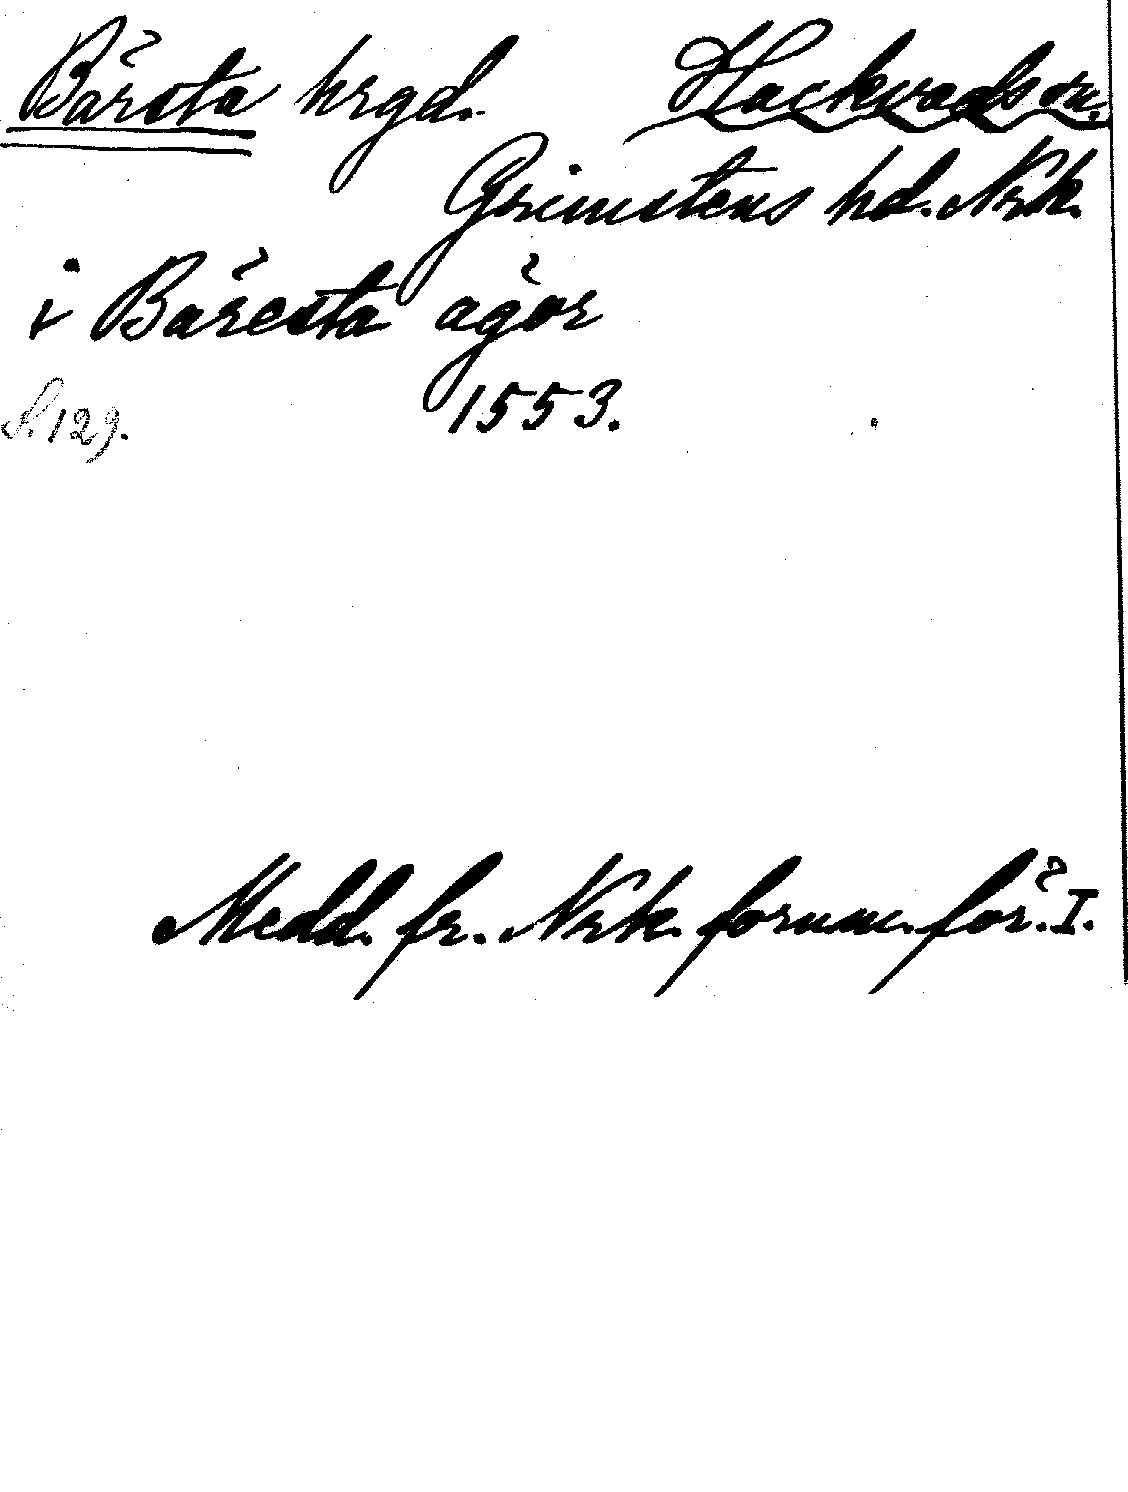 Bärsta hrgd. Hackvads sn.
Grimstens hd. Nrk.
i Bäresta ägor
S. 129. 1553.
Medd. fr. Nrk. fornm. för. I.